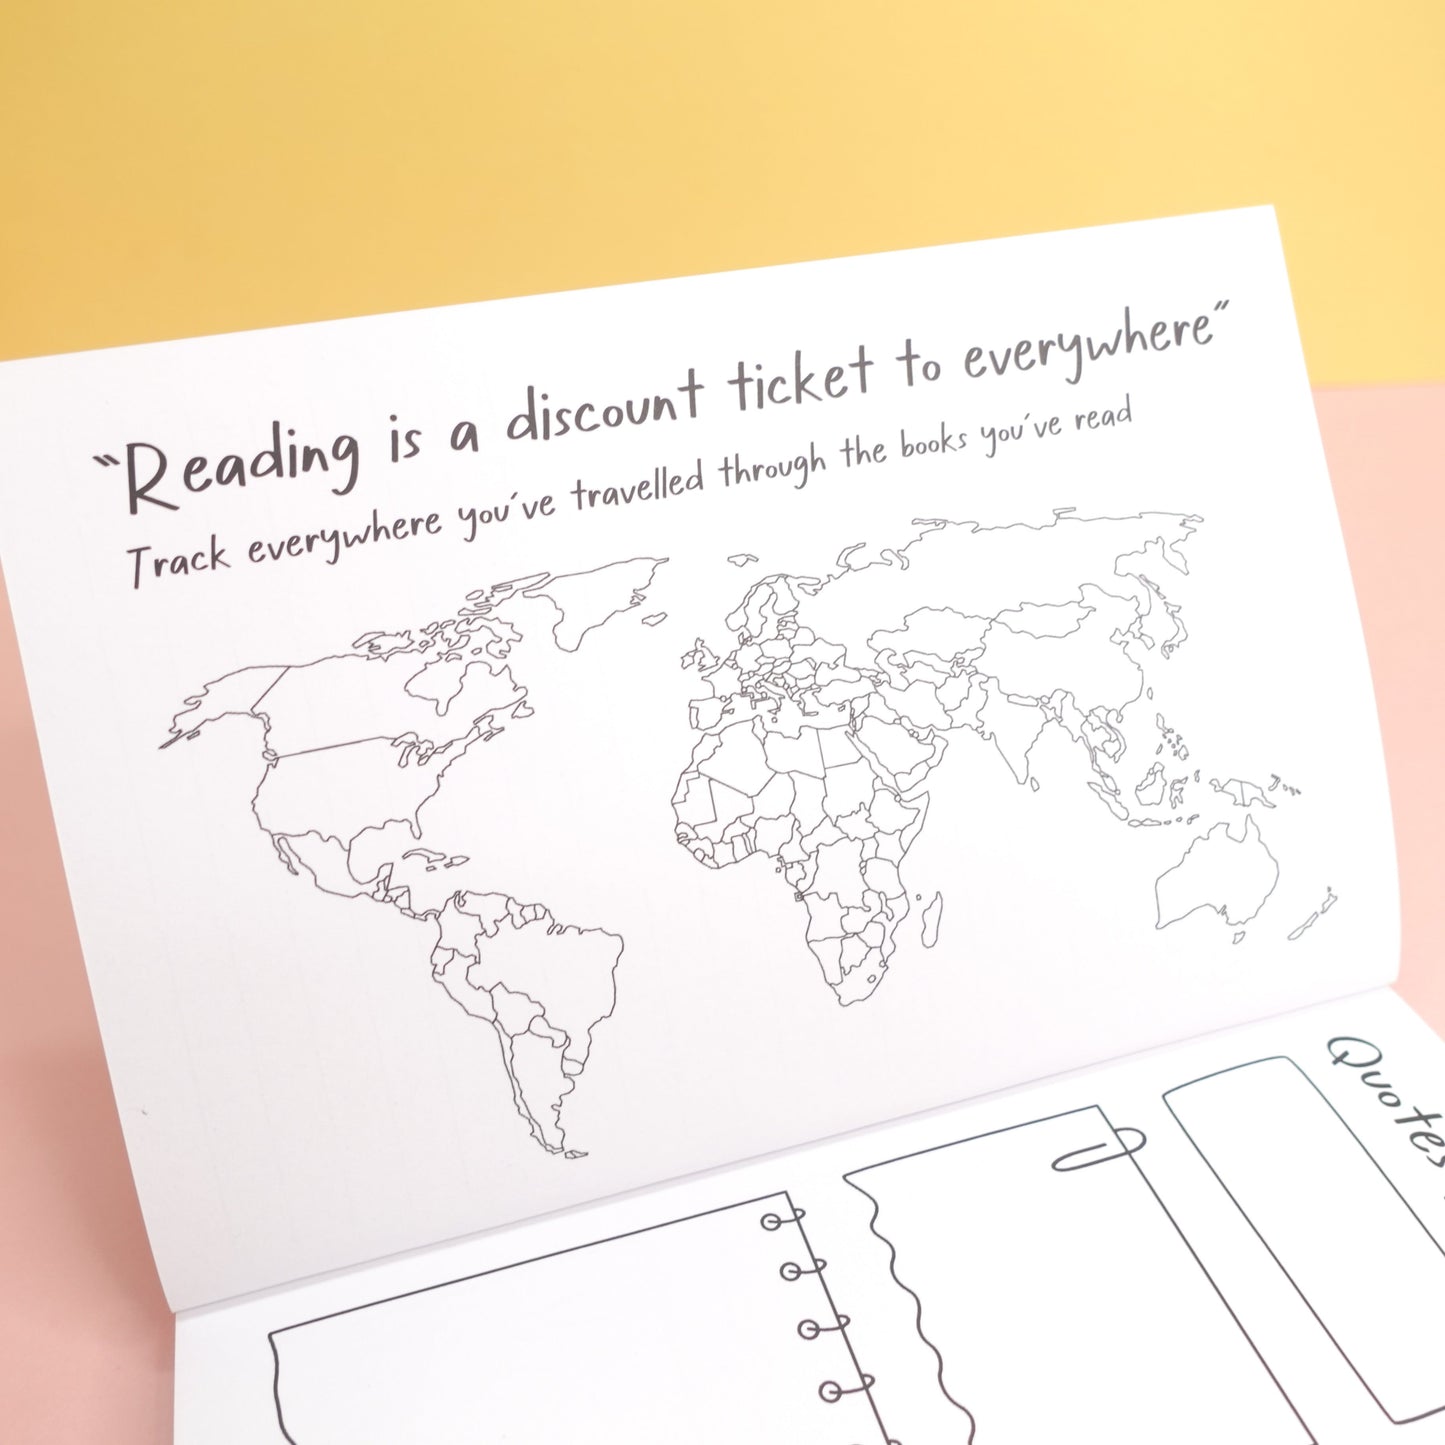 “Reading is a discount ticket to everywhere”
Track everywhere you've travelled through the books you've read
Quotes